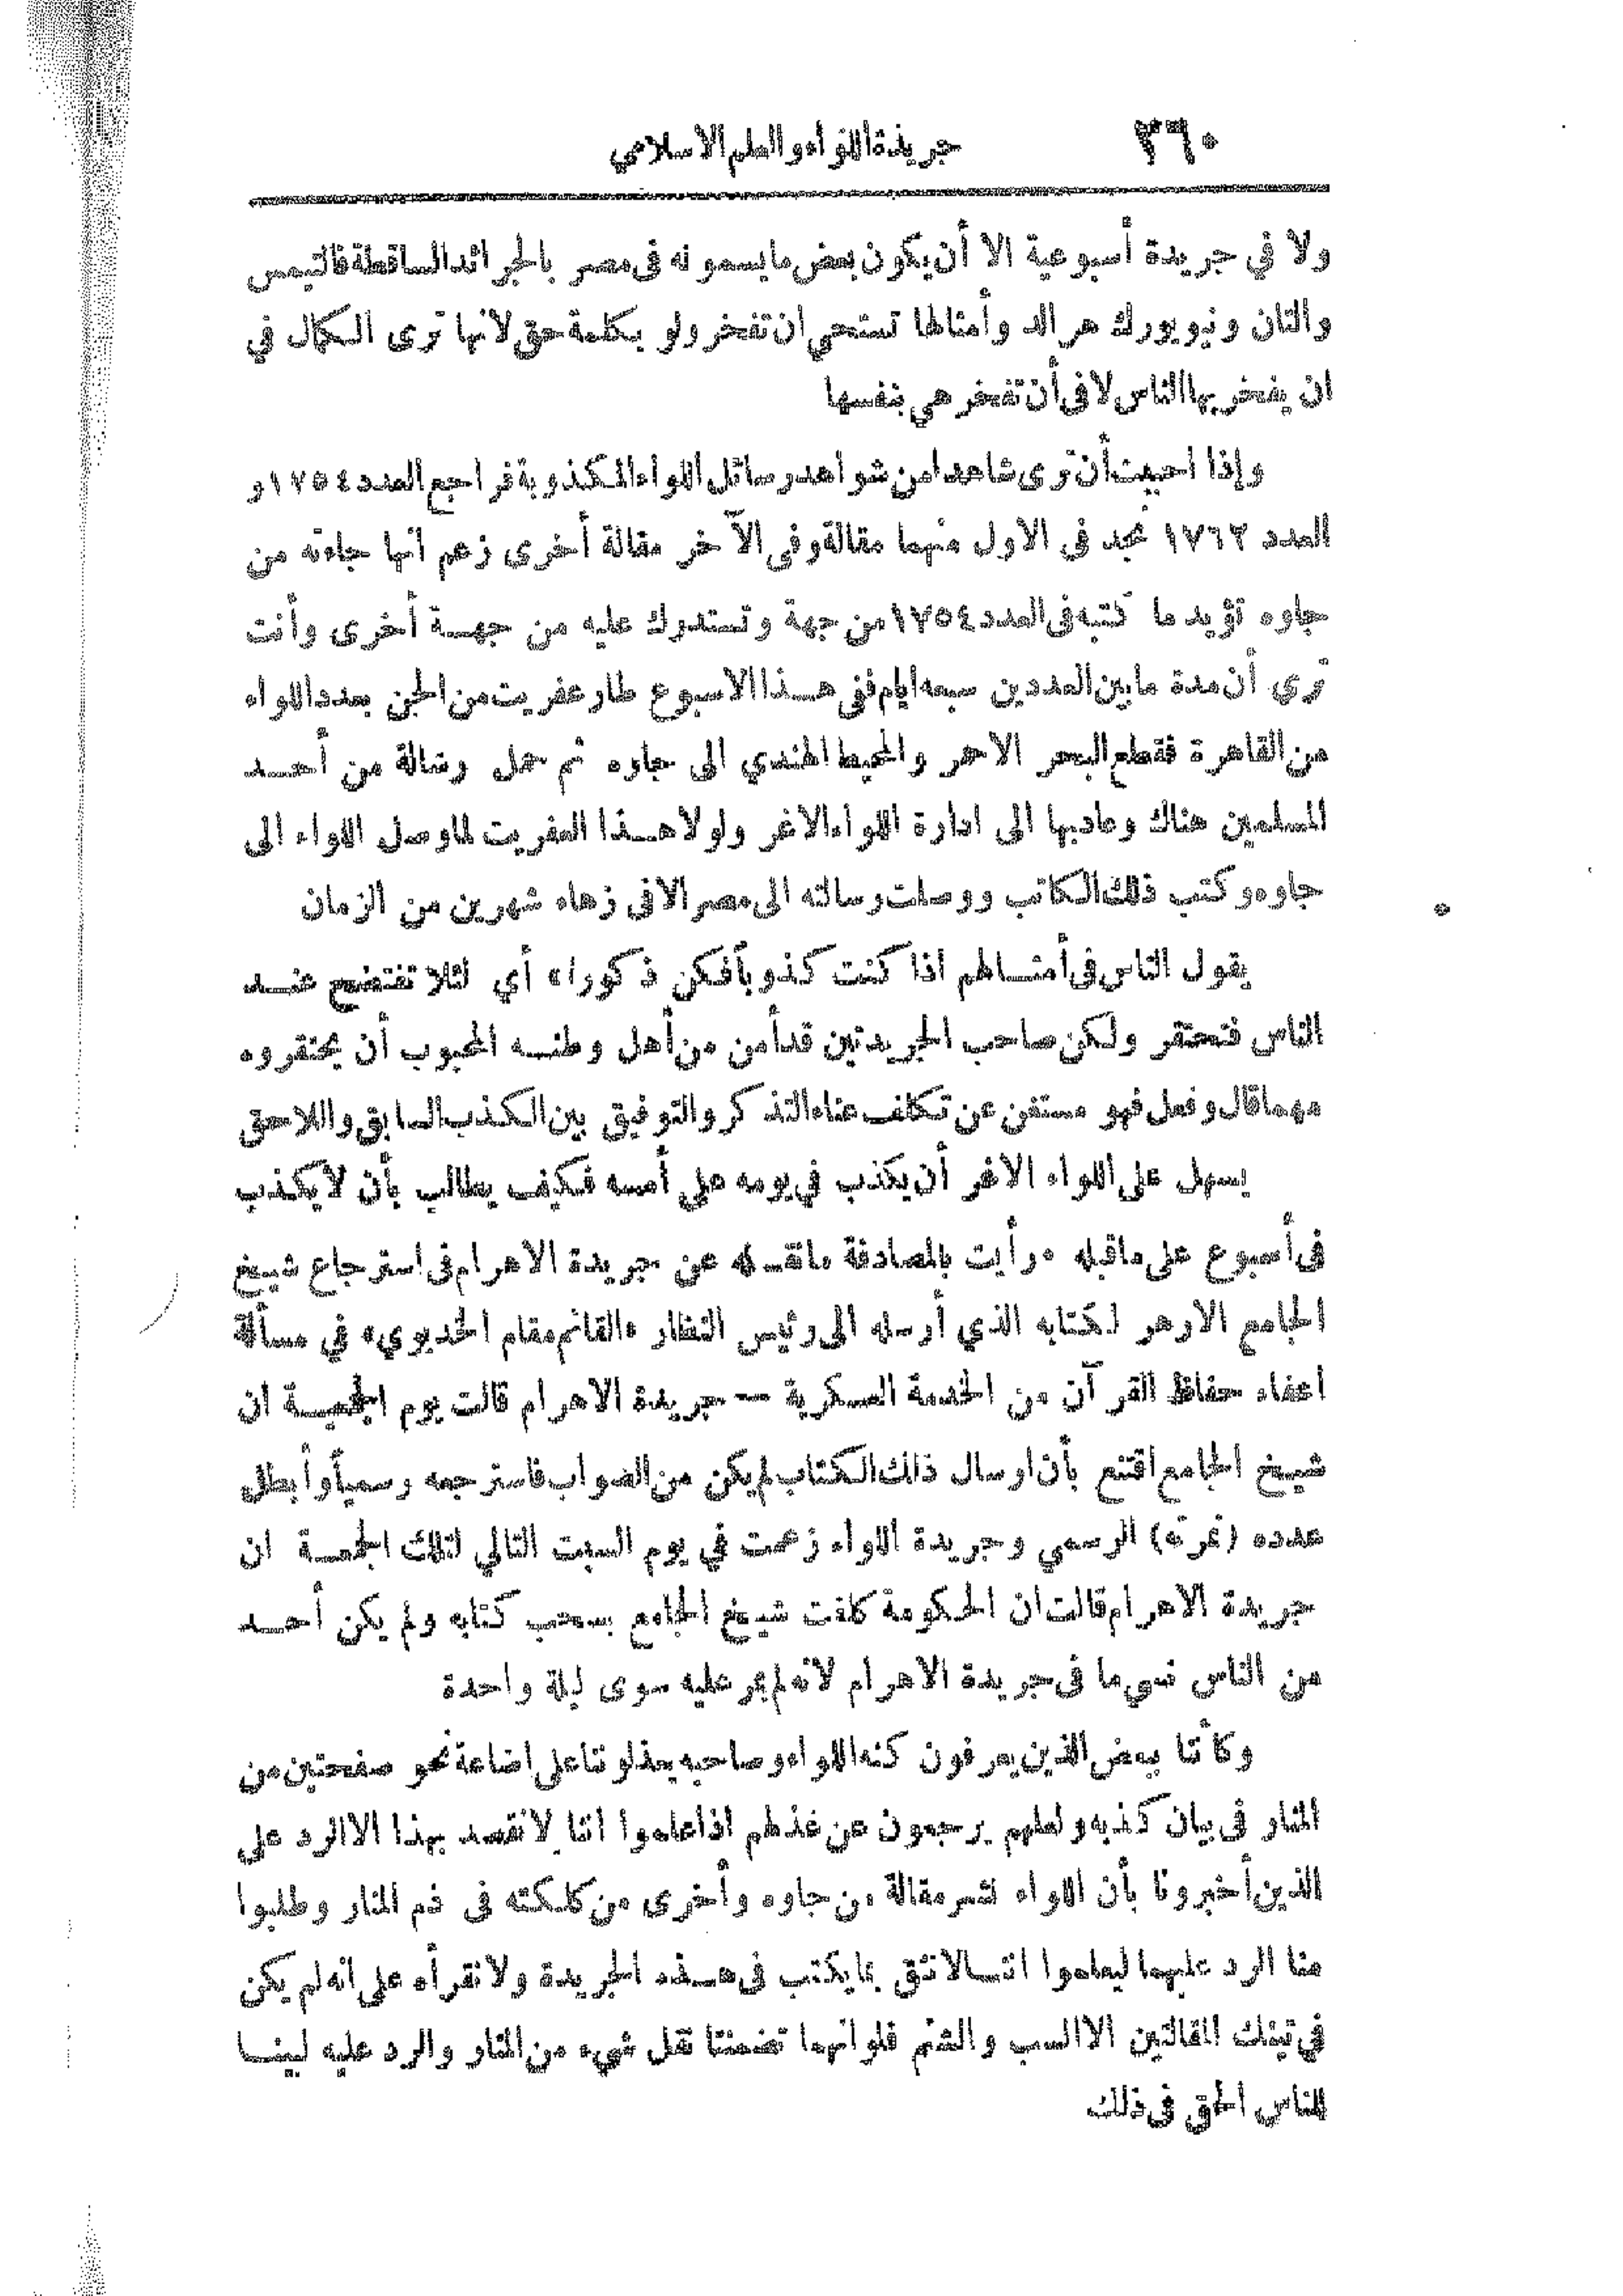 ٣٦٠
جريدة اللواء والعلم الاسلامي
ولا في جريدة أسبوعية الا أن يكون بعض ما يسمونه في مصر بالجرائد الساقطة فالتيمس
والتان ونيويورك هرالد وأمثالها تستحي ان تفخر ولو بكلمة حق لانها ترى الكمال في
ان يفخر بها الناس لا في أن تفخر هي بنفسها
وإذا احببت أن ترى شاهدا من شواهد رسائل اللواء المكذوبة فراجع العدد ١٧٥٤ و
العدد ١٧٦٢ تجد في الاول منهما مقالة وفي الآخر مقالة أخرى زعم أنها جاءته من
جاوه تؤيد ما كتبه في العدد ١٧٥٤ من جهة وتستدرك عليه من جهة أخرى وأنت
ترى أن مدة ما بين العددين سبعه ايام ففي هذا الاسبوع طار عفريت من الجن بعدد اللواء
من القاهرة فقطع البحر الاحمر والمحيط الهندي الى جاوه ثم حمل رسالة من أحد
المسلمين هناك وعاد بها الى ادارة اللواء الاغر ولولا هذا العفريت لما وصل اللواء الى
جاوه وكتب ذلك الكاتب ووصلت رسالته الى مصر الا في زهاء شهرين من الزمان
يقول الناس في أمثالهم اذا كنت كذوبا فكن ذكورا، أي لئلا تفتضح عند
الناس فتحتقر ولكن صاحب الجريدتين قد أمن من أهل وطنه المحبوب أن يحتقروه
مهما قال وفعل فهو مستغن عن تكلف عناء التذكر والتوفيق بين الكذب السابق واللاحق
يسهل على اللواء الاغر أن يكذب في يومه على أمسه فكيف يطالب بأن لا يكذب
في أسبوع على ما قبله . رأيت بالمصادفة ما نقله عن جريدة الاهرام في استرجاع شيخ
الجامع الازهر لكتابه الذي أرسله الى رئيس النظار «القائم مقام الخديوي» في مسألة
اعفاء حفاظ القرآن من الخدمة العسكرية -- جريدة الاهرام قالت يوم الجمعة ان
شيخ الجامع اقتنع بأن ارسال ذلك الكتاب لم يكن من الصواب فاسترجعه رسمياً وأبطل
عدده (نمرته) الرسمي وجريدة اللواء زعمت في يوم السبت التالي لتلك الجمعة ان
جريدة الاهرام قالت ان الحكومة كلفت شيخ الجامع بسحب كتابه ولم يكن أحد
من الناس نسي ما في جريدة الاهرام لانه لم يمر عليه سوى ليلة واحدة
وكأنا ببعض الذين يعرفون كنه اللواء وصاحبه يعذلوننا على اضاعة نحو صفحتين من
المنار في بيان كذبه ولعلهم يرجعون عن عذلهم اذا علموا اننا لا نقصد بهذا الا الرد على
الذين أخبرونا بأن اللواء نشر مقالة من جاوه وأخرى من كلكته في ذم المنار وطلبوا
منا الرد عليهما ليعلموا اننا لا نثق بما يكتب في هذه الجريدة ولا نقرأه على انه لم يكن
في تينك المقالتين الا السب والشتم فلو انهما تضمنتا نقل شيء من المنار والرد عليه لبينا
للناس الحق في ذلك